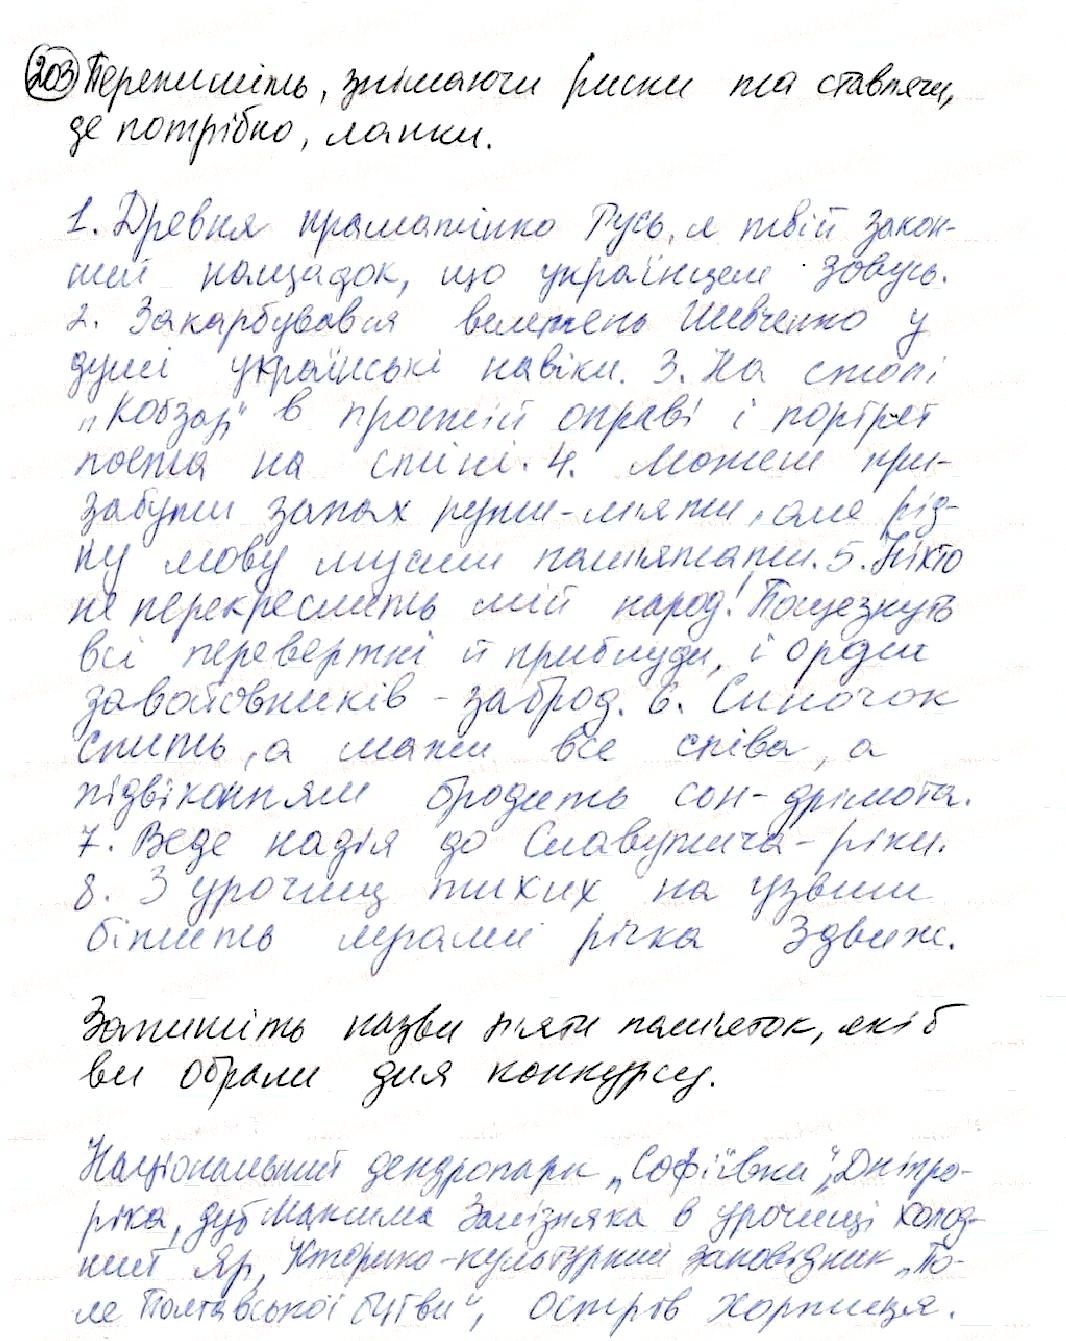 203 Перепишіть, знімаючи риски та ставлячи,
де потрібно, лапки.
1. Древня праматінко Русь, я твій закон-
ний нащадок, що українцем зовусь.
2. Закарбувався велетень Шевченко у
душі українські навіки. 3. На столі
„Кобзар" в простій оправі і портрет
поета на стіні. 4. Можеш при-
забути запах рути-м'яти, але рід-
ну мову мусиш пам'ятати. 5. Ніхто
не перекреслить мій народ! Пощезнуть
всі перевертні й приблуди, і орди
завойовників - заброд. 6. Синочок
спить, а мати все співа, а
підвіконням бродить сон-дрімота.
7. Веде надія до Славутича-ріки.
8. З урочищ тихих на узвиш
біжить лугами річка Здвиж.
Запишіть назви п'яти пам'яток, які б
ви обрали для конкурсу.
Національний дендропарк „Софіївка", Дніпро-
ріка, дуб Максима Залізняка в урочищі Холод-
ний Яр, Історико-культурний заповідник „По-
ле Полтавської битви", острів Хортиця.